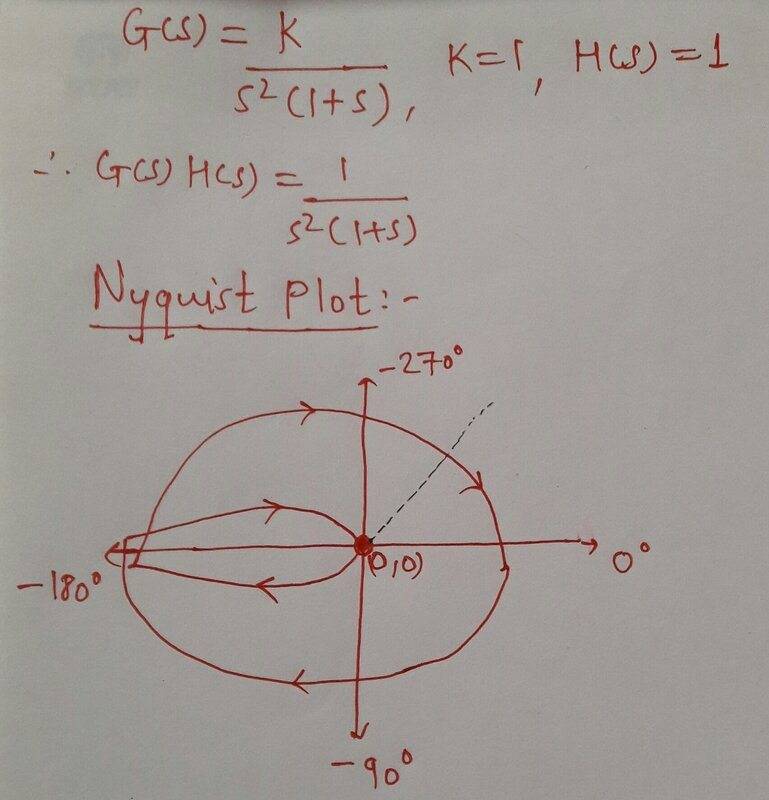 G(s) = K / s²(1+s), K=1, H(s) = 1
∴ G(s) H(s) = 1 / s²(1+s)
Nyquist Plot:-
-270°
(0,0)
0°
-180°
-90°